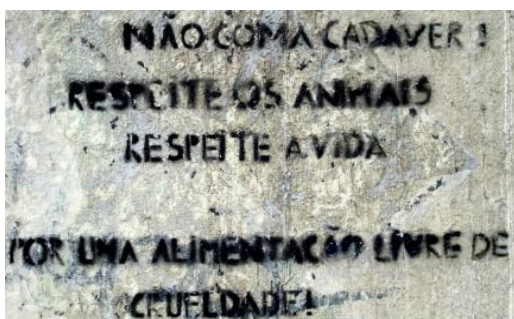 NÃO COMA CADAVER !
RESPEITE OS ANIMAIS
RESPEITE A VIDA
POR UMA ALIMENTAÇÃO LIVRE DE
CRUELDADE!